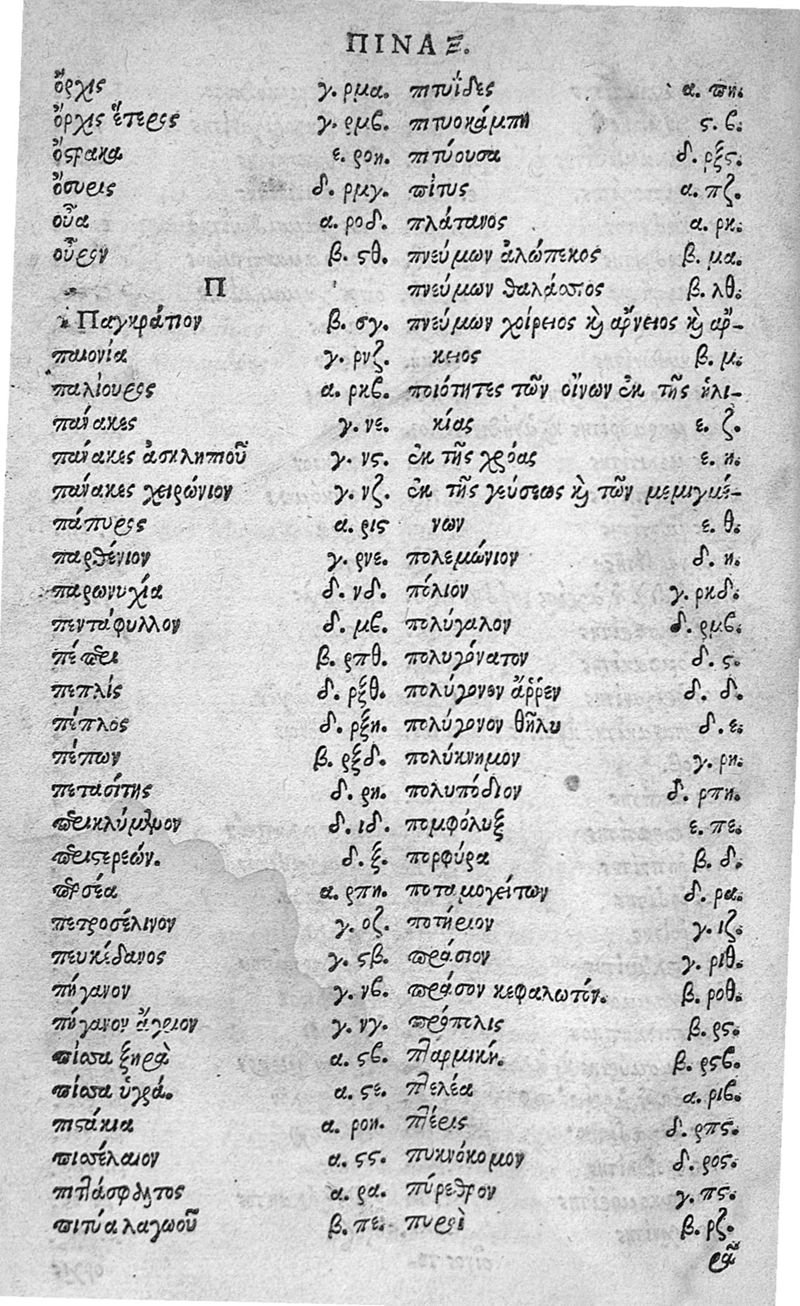 ΠΙΝΑΞ.
ὄρχις γ. ρμα.
ὄρχις ἕτερος γ. ρμβ.
ὄστρακα ε. ροη.
ὄσυρις δ. ρμγ.
οὖα α. ροδ.
οὖρον β. ϛθ.
Π
Παγκράτιον β. σγ.
παιονία γ. ρνζ.
παλίουρος α. ρκβ.
πάνακες γ. νε.
πάνακες ἀσκληπιοῦ γ. νϛ.
πάνακες χειρώνιον γ. νζ.
πάπυρος α. ριϛ
παρθένιον γ. ρνε.
παρωνυχία δ. νδ.
πεντάφυλλον δ. μβ.
πέπερι β. ρπθ.
πεπλίς δ. ρξθ.
πέπλος δ. ρξη.
πέπων β. ρξδ.
πετασίτης δ. ρη.
περικλύμενον δ. ιδ.
περιστερεών. δ. ξ.
περσέα α. ρπη.
πετροσέλινον γ. οζ.
πευκέδανος γ. ϛβ.
πήγανον γ. νβ.
πήγανον ἄγριον γ. νγ.
πίσσα ξηρὰ α. ϛβ.
πίσσα ὑγρά. α. ϛε.
πιστάκια α. ροη.
πισσέλαιον α. ϛϛ.
πισσάσφαλτος α. ρα.
πιτύα λαγωοῦ β. πε.
πιτυΐδες α. πη.
πιτυοκάμπη ϛ. β.
πιτύουσα δ. ρξϛ.
πίτυς α. πζ.
πλάτανος α. ρκ.
πνεύμων ἀλώπεκος β. μα.
πνεύμων θαλάσσιος β. λθ.
πνεύμων χοίρειος καὶ ἄρνειος καὶ ἄρ-
κειος β. μ.
ποιότητες τῶν οἴνων ἐκ τῆς ἡλι-
κίας ε. ζ.
ἐκ τῆς χρόας ε. η.
ἐκ τῆς γεύσεως καὶ τῶν μεμιγμέ-
νων ε. θ.
πολεμώνιον δ. η.
πόλιον γ. ρκδ.
πολύγαλον δ. ρμβ.
πολυγόνατον δ. ϛ.
πολύγονον ἄῤῥεν δ. δ.
πολύγονον θῆλυ δ. ε.
πολύκνημον γ. ρη.
πολυπόδιον δ. ρπη.
πομφόλυξ ε. πε.
πορφύρα β. δ.
ποταμογείτων δ. ρα.
ποτήριον γ. ιζ.
πράσιον γ. ριθ.
πράσον κεφαλωτόν. β. ροθ.
πρόπολις β. ρϛ.
πταρμική. β. ρϛβ.
πτελέα α. ριβ.
πτέρις δ. ρπϛ.
πυκνόκομον δ. ροϛ.
πύρεθρον γ. πϛ.
πυροὶ β. ρζ.
ρᾶ